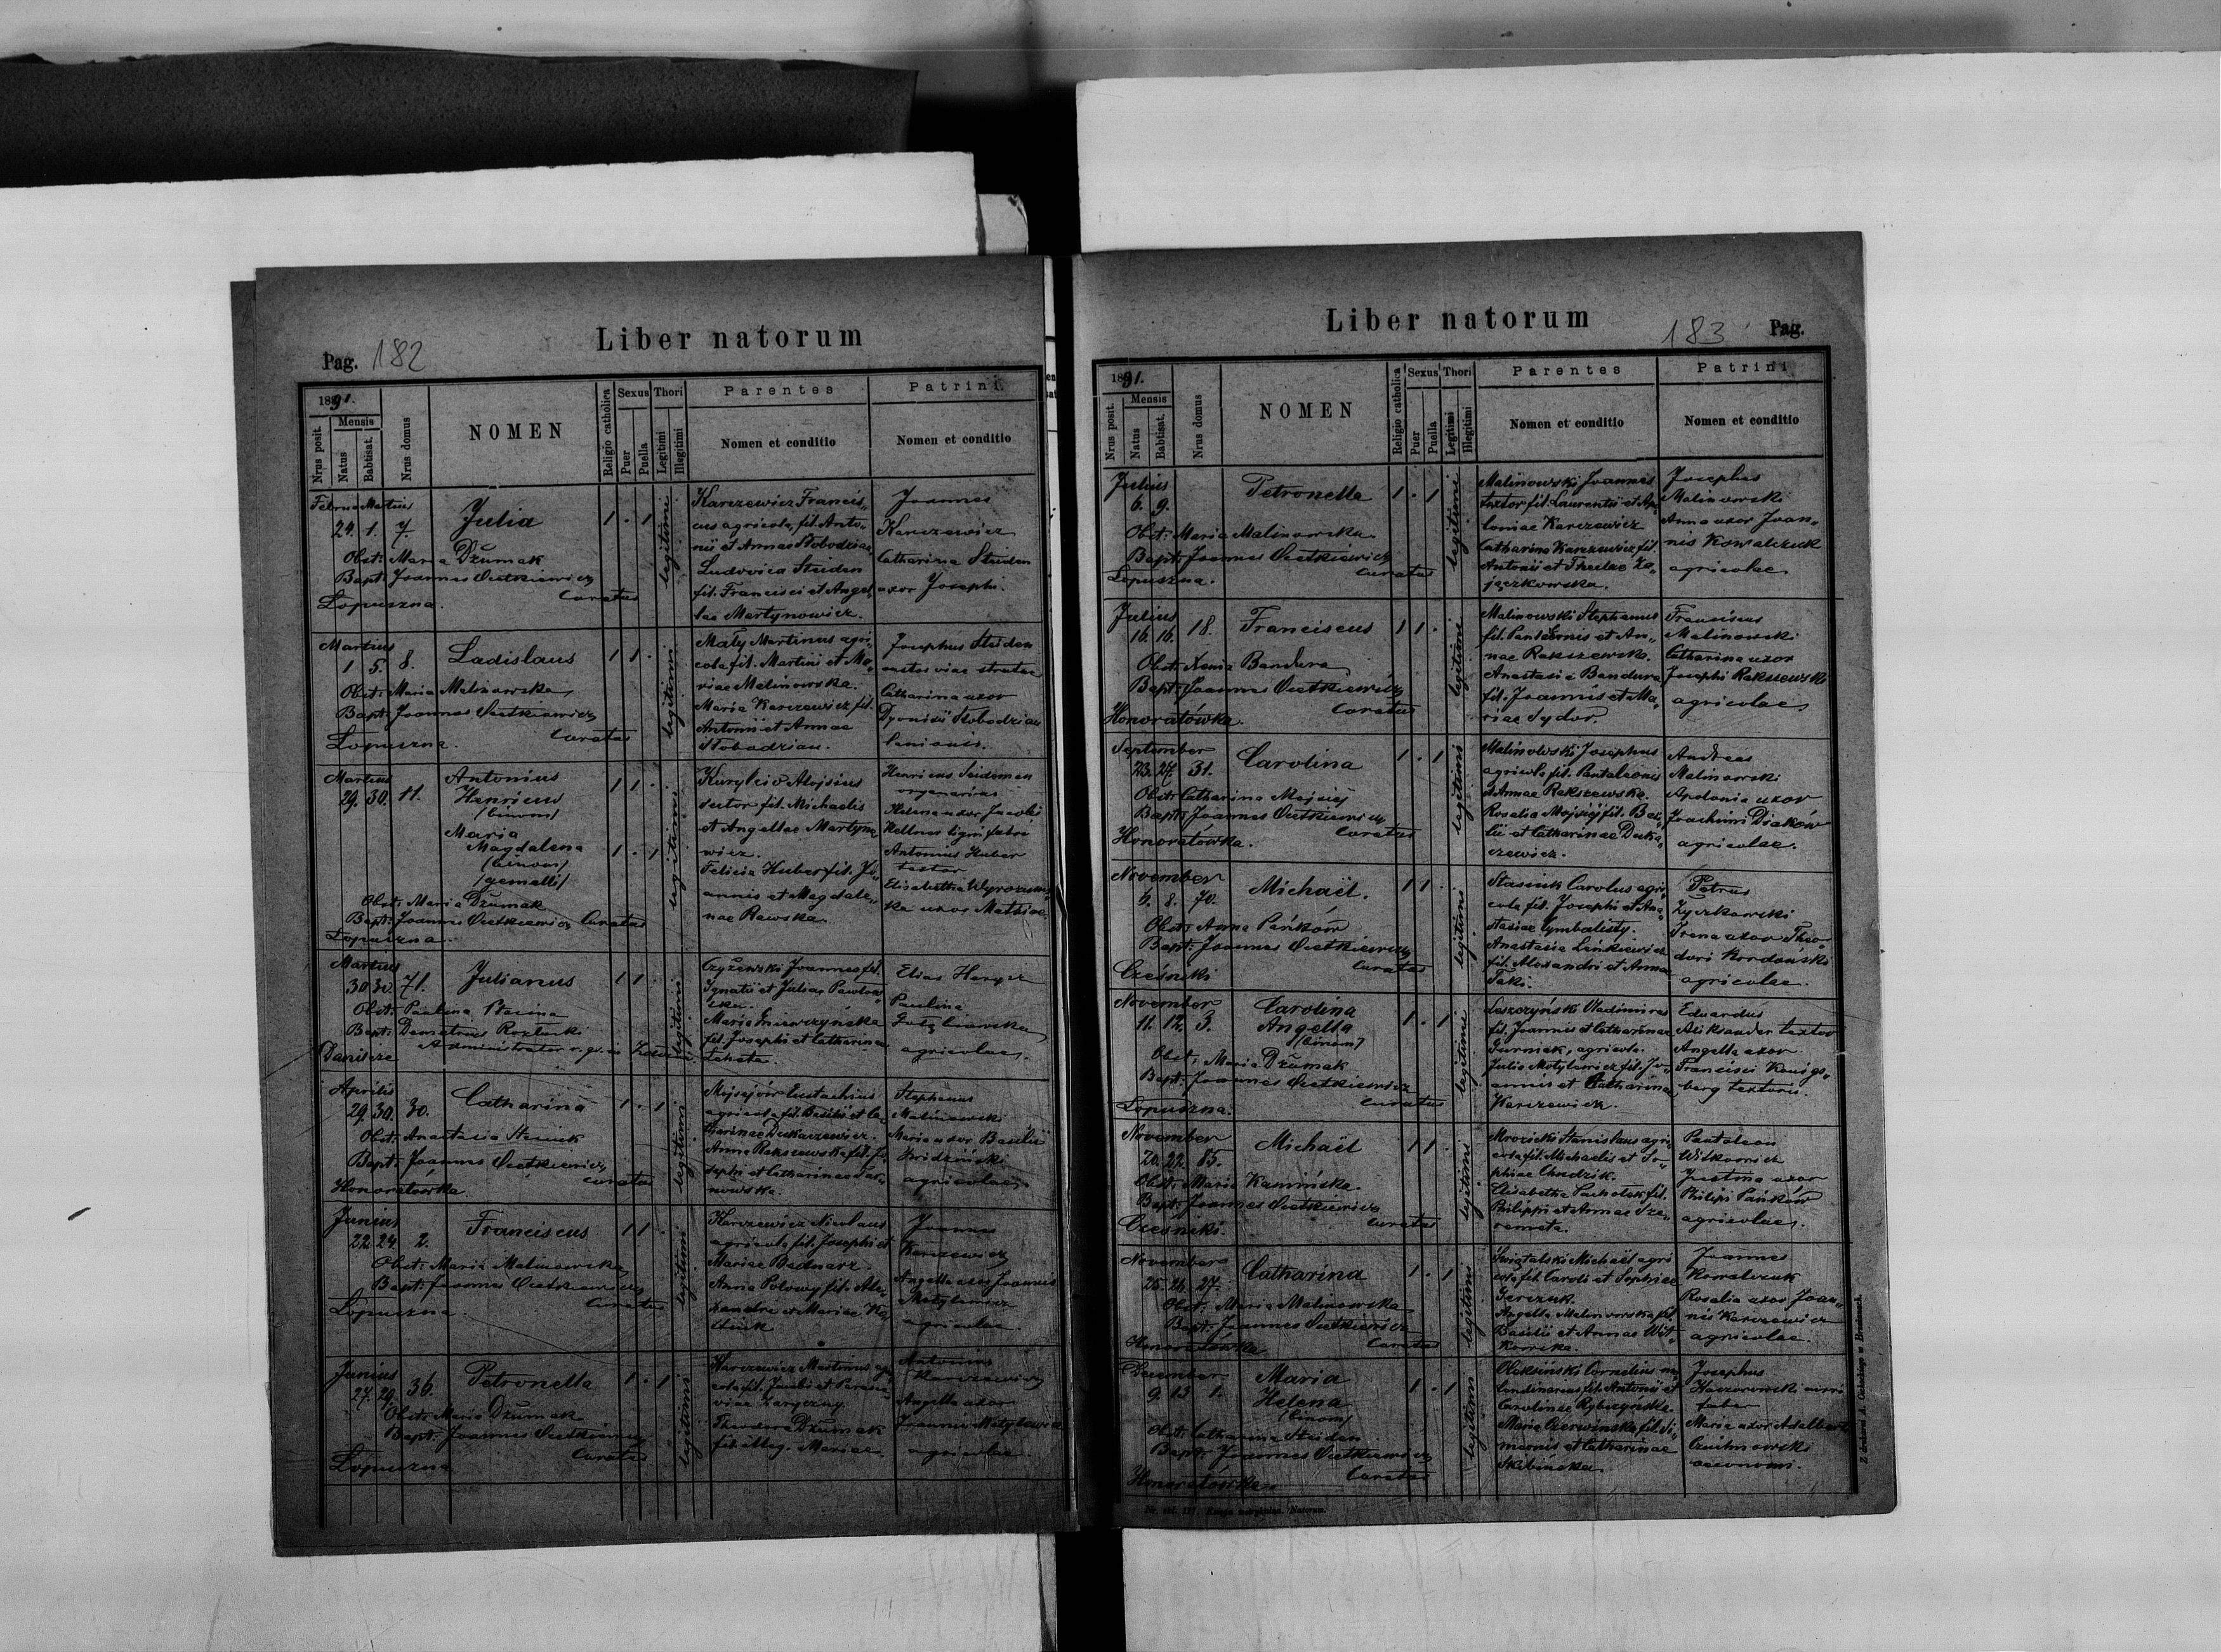 Liber natorum
Pag. 182
1891.
Nrus posit.
Mensis
Natus
Babtisat.
Nrus domus
NOMEN
Religio catholica
Sexus
Puer
Puella
Thori
Legitimi
Illegitimi
Parentes
Nomen et conditio
Patrini
Nomen et conditio
Februa Martius
24. 1. 7. Julia 1 . 1 legitimi
Obst: Maria Dżumak
Bapt: Joannes Oietkiewicz
Curatus
Łopuszna.
Karczewicz Francis„
cus agricola, fil. Anto„
nii et Annae Słobodzian
Ludovica Studen
fil. Francisci et Angel„
lae Martynowicz.
Joannes
Karczewicz
Catharina Studen
uxor Josephi.
Martius
1 5. 8. Ladislaus 1 1 . legitimi
Obst: Maria Malinowska
Bapt: Joannes Oietkiewicz
Curatus
Łopuszna.
Mały Martinus agri„
cola fil. Martini et Ma„
riae Malinowska.
Maria Karczewicz fil.
Antonii et Annae
Słobodzian.
Josephus Studen
custos viae stratae
Catharina uxor
Dyonisii Słobodzian
Martius
29. 30. 11. Antonius
Henricus
(binom)
1 1 .
Maria
Magdalena
(binom)
(gemelli)
1 . 1
legitimi
Obst: Maria Dżumak
Bapt: Joannes Oietkiewicz Curatus
Łopuszna.
Aloisius
sutor fil. Michaelis
et Angellae Martyno
wicz.
Felicia Huber fil. Jo„
annis et Magdale„
nae Rawska
Henricus Seideman
Helena uxor Jacobi
Kellner ligni fabri
Antonius Huber
textor
Elisabetha
uxor Mathiae
Martius
30 30. 71. Julianus 1 1 . legitimi
Obst: Paulina
Bapt: Demetrius
Administrator r. gr. in
Czyżewski Joannes fil.
Ignatii et Julia
Maria
fil. Josephi et Catharinae
Elias
Paulina
agricolae.
Aprilis
29 30. 30. Catharina 1 . 1 legitimi
Obst: Anastasia
Bapt: Joannes Oietkiewicz
Curatus
Honoratówka
Eustachius
agricola fil. Basilii et Ca
tharinae Dukaczewicz.
Anna Rakszewska fil. Jo„
sephi et Catharinae
nowska.
Stephanus
Malinowski
Maria uxor Basilii
agricolae
Junius
22 24. 2. Franciscus 1 1 . legitimi
Obst: Maria Malinowska
Bapt: Joannes Oietkiewicz
Curatus
Łopuszna.
Karczewicz Nicolaus
agricola fil. Josephi et
Mariae Bednarz.
Anna Połowy fil. Ale„
xandri et Mariae
Joannes
Karczewicz
Angella uxor Joannis
Motylewicz
agricolae.
Junius
27. 29. 36. Petronella 1 . 1 legitimi
Obst: Maria Dżumak
Bapt: Joannes Oietkiewicz
Curatus
Łopuszna
Karczewicz Martinus agri
cola fil. Jacobi et
Theodora Dżumak
fil. illeg. Mariae.
Antonius
Karczewicz
Angella uxor
Joannis Motylewicz
agricolae.
Liber natorum
183 Pag.
1891.
Nrus posit.
Mensis
Natus
Babtisat.
Nrus domus
NOMEN
Religio catholica
Sexus
Puer
Puella
Thori
Legitimi
Illegitimi
Parentes
Nomen et conditio
Patrini
Nomen et conditio
Julius
6. 9. Petronella 1 . 1 legitimi
Obst: Maria Malinowska
Bapt: Joannes Oietkiewicz
Curatus
Łopuszna.
Malinowski Joannes
textor fil. Laurentii et Ap„
loniae Karczewicz
Catharina Karczewicz fil.
Antonii et Theclae Za„
jączkowska.
Josephus
Malinowski
Anna uxor Joan„
nis Kowalczuk
agricolae
Julius
16. 16. 18. Franciscus 1 1 . legitimi
Obst: Xenia Bandura
Bapt: Joannes Oietkiewicz
Curatus
Honoratówka.
Malinowski Stephanus
fil. Pantaleonis et An„
nae Rakszewska.
Anastasia Bandura
fil. Joannis et Ma„
riae Sydor.
Franciscus
Malinowski
Catharina uxor
Josephi Rakszewski
agricolae
September
23. 27. 31. Carolina 1 . 1 legitimi
Obst: Catharina Mojsiej
Bapt: Joannes Oietkiewicz
Curatus
Honoratówka.
Malinowski Josephus
agricola fil. Pantaleonis
et Annae Rakszewska.
Rosalia Mojsiej fil. Basi„
lii et Catharinae Duka„
czewicz.
Andreas
Malinowski
Apolonia uxor
Joachimi Diaków
agricolae.
November
6. 8. 70. Michaël. 1 1 . legitimi
Obst: Anna Pańków
Bapt: Joannes Oietkiewicz
Curatus
Cześniki
Stasiuk Carolus agri„
cola fil. Josephi et Ana„
stasiae Cymbalisty.
Anastasia Linkiewicz
fil. Alexandri et Annae
Taki.
Petrus
Życzkowski
Irena uxor Theo„
dori Kordański
agricolae.
November
11. 12. 3. Carolina
Angella
(binom)
1 . 1 legitimi
Obst. Maria Dżumak
Bapt: Joannes Oietkiewicz
Curatus
Łopuszna.
Leszczyński Vladimirus
fil. Joannis et Catharinae
Gurniak, agricola.
Julia Motylewicz fil. Jo„
annis et Catharina
Karczewicz.
Eduardus
Aleksander textor
Angella uxor
Francisci Konigs„
berg textoris.
November
20. 22. 85. Michaël 1 1 . legitimi
Obst: Maria Kamińska.
Bapt: Joannes Oietkiewicz
Curatus
Cześniki.
Mrozicki Stanislaus agri„
cola fil. Michaelis et So„
phiae Chudzik.
Elisabetha fil.
Philippi et Annae Sze„
remeta.
Pantaleon
Witkowicz
Justina uxor
Philipi Pańków
agricolae.
November
25. 26. 27. Catharina 1 . 1 legitimi
Obst: Maria Malinowska
Bapt: Joannes Oietkiewicz
Curatus
Honoratówka
Świątalski Michaël agri
cola fil. Caroli et Sophiae
Angella Malinowska fil.
Basilii et Annae Wit„
kowska.
Joannes
Kowalczuk
Rosalia uxor Joan„
nis Karczewicz
agricolae.
December
9. 13 1. Maria
Helena
(binom)
1 . 1 legitimi
Obst: Catharina Studen.
Bapt: Joannes Oietkiewicz
Curatus
Honoratówka
Oleksiński Cornelius mo
lendinarius fil. Antonii et
Carolinae Rybczyńska
Maria Czerwińska fil. Si„
meonis et Catharinae
Skibińska.
Josephus
Kaczorowski
faber
Maria uxor Adalberti
oeconomi.
Z drukarni A. Cichockiego w Brzeżanach.